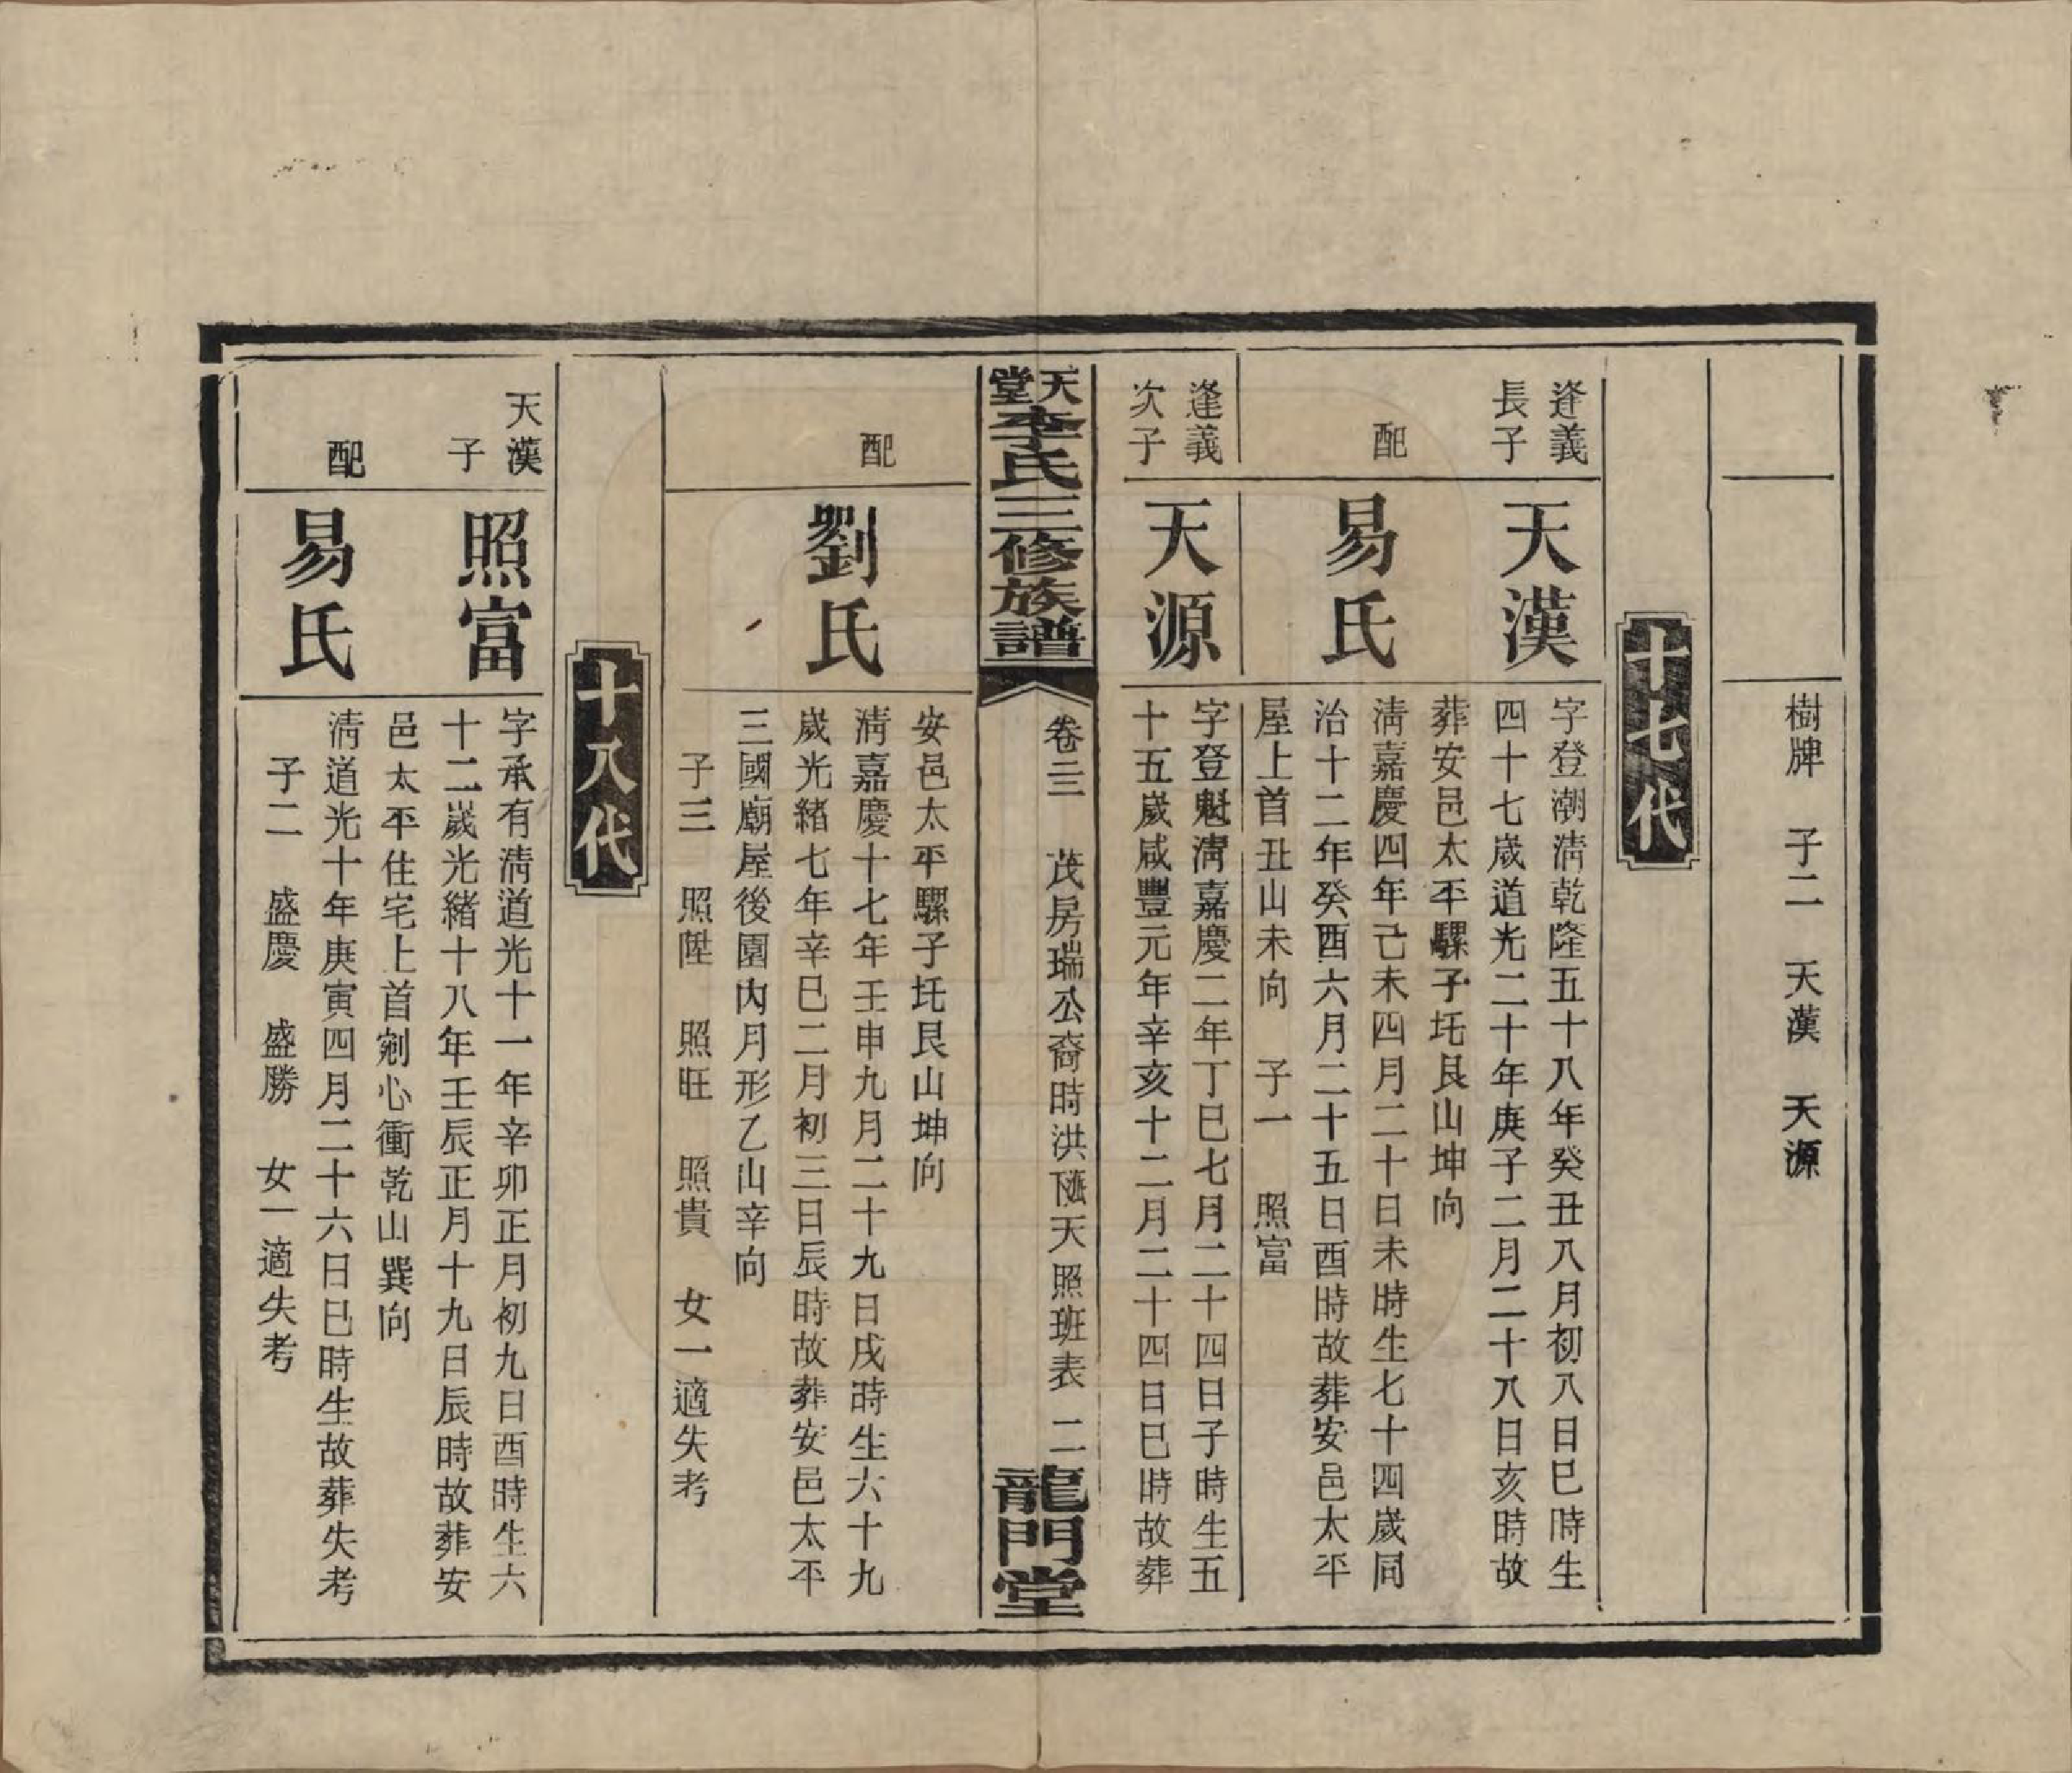 樹牌　子二　天漢　天源
十七代
逢義
長子
天漢
字登潮淸乾隆五十八年癸丑八月初八日巳時生
四十七歲道光二十年庚子二月二十八日亥時故
葬安邑太平騾子圫艮山坤向
配
易氏
淸嘉慶四年己未四月二十日未時生七十四歲同
治十二年癸酉六月二十五日酉時故葬安邑太平
屋上首丑山未向　子一　照富
逢義
次子
天源
字登魁淸嘉慶二年丁巳七月二十四日子時生五
十五歲咸豐元年辛亥十二月二十四日巳時故葬
天堂李氏三修族譜
卷二三　茂房瑞公裔時洪　天照班表　二
龍門堂
安邑太平騾子圫艮山坤向
配
劉氏
淸嘉慶十七年壬申九月二十九日戌時生六十九
歲光緒七年辛巳二月初三日辰時故葬安邑太平
三國廟屋後園內月形乙山辛向
子三　照陞　照旺　照貴　女一適失考
十八代
天漢
子
照富
字承有淸道光十一年辛卯正月初九日酉時生六
十二歲光緒十八年壬辰正月十九日辰時故葬安
邑太平住宅上首剜心衝乾山巽向
配
易氏
淸道光十年庚寅四月二十六日巳時生故葬失考
子二　盛慶　盛勝　女一適失考